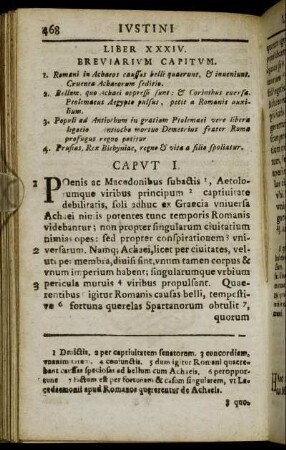 468 IVSTINI
LIBER XXXIV.
BREVIARIVM CAPITVM.
1. Romani in Achaeos caussas belli quaerunt, & inueniunt.
Cruenta Achaeorum seditio.
2. Bellum, quo Achaei oppressi sunt: & Corinthus euersa.
Ptolemaeus Aegypto pulsus, petit a Romanis auxi-
lium.
3. Populi ad Antiochum in gratiam Ptolemaei vere libera
legatio Antiocho mortuo Demetrius frater Roma
profugus regno potitur
4. Prusias, Rex Bithyniae, regno & vita a filio spoliatur.
CAPVT I.
1 POenis ac Macedonibus subactis 1, Aetolo-
rumque viribus principum 2 captiuitate
debilitatis, soli adhuc ex Graecia vniuersa
Achaei nimis potentes tunc temporis Romanis
videbantur; non propter singularum ciuitatium
nimias opes: sed propter conspirationem 3 vni-
2 versarum. Namq; Achaei, licet per ciuitates, ve-
lut per membra, diuisi sint, vnum tamen corpus &
vnum imperium habent; singularumque vrbium
3 pericula mutuis 4 viribus propulsant. Quae-
rentibus 5 igitur Romanis causas belli, tempesti-
ve 6 fortuna querelas Spartanorum obtulit 7,
quorum
1 Deuictis. 2 per captiuitatem senatorum. 3 concordiam,
4 coniunctis. 5 dum igitur Romani quaere-
bant caussas speciosas ad bellum cum Achaeis. 6 peroppor-
tune 7 factum est per fortunam & casum singularem, vt La-
cedaemonii apud Romanos quererentur de Achaeis.